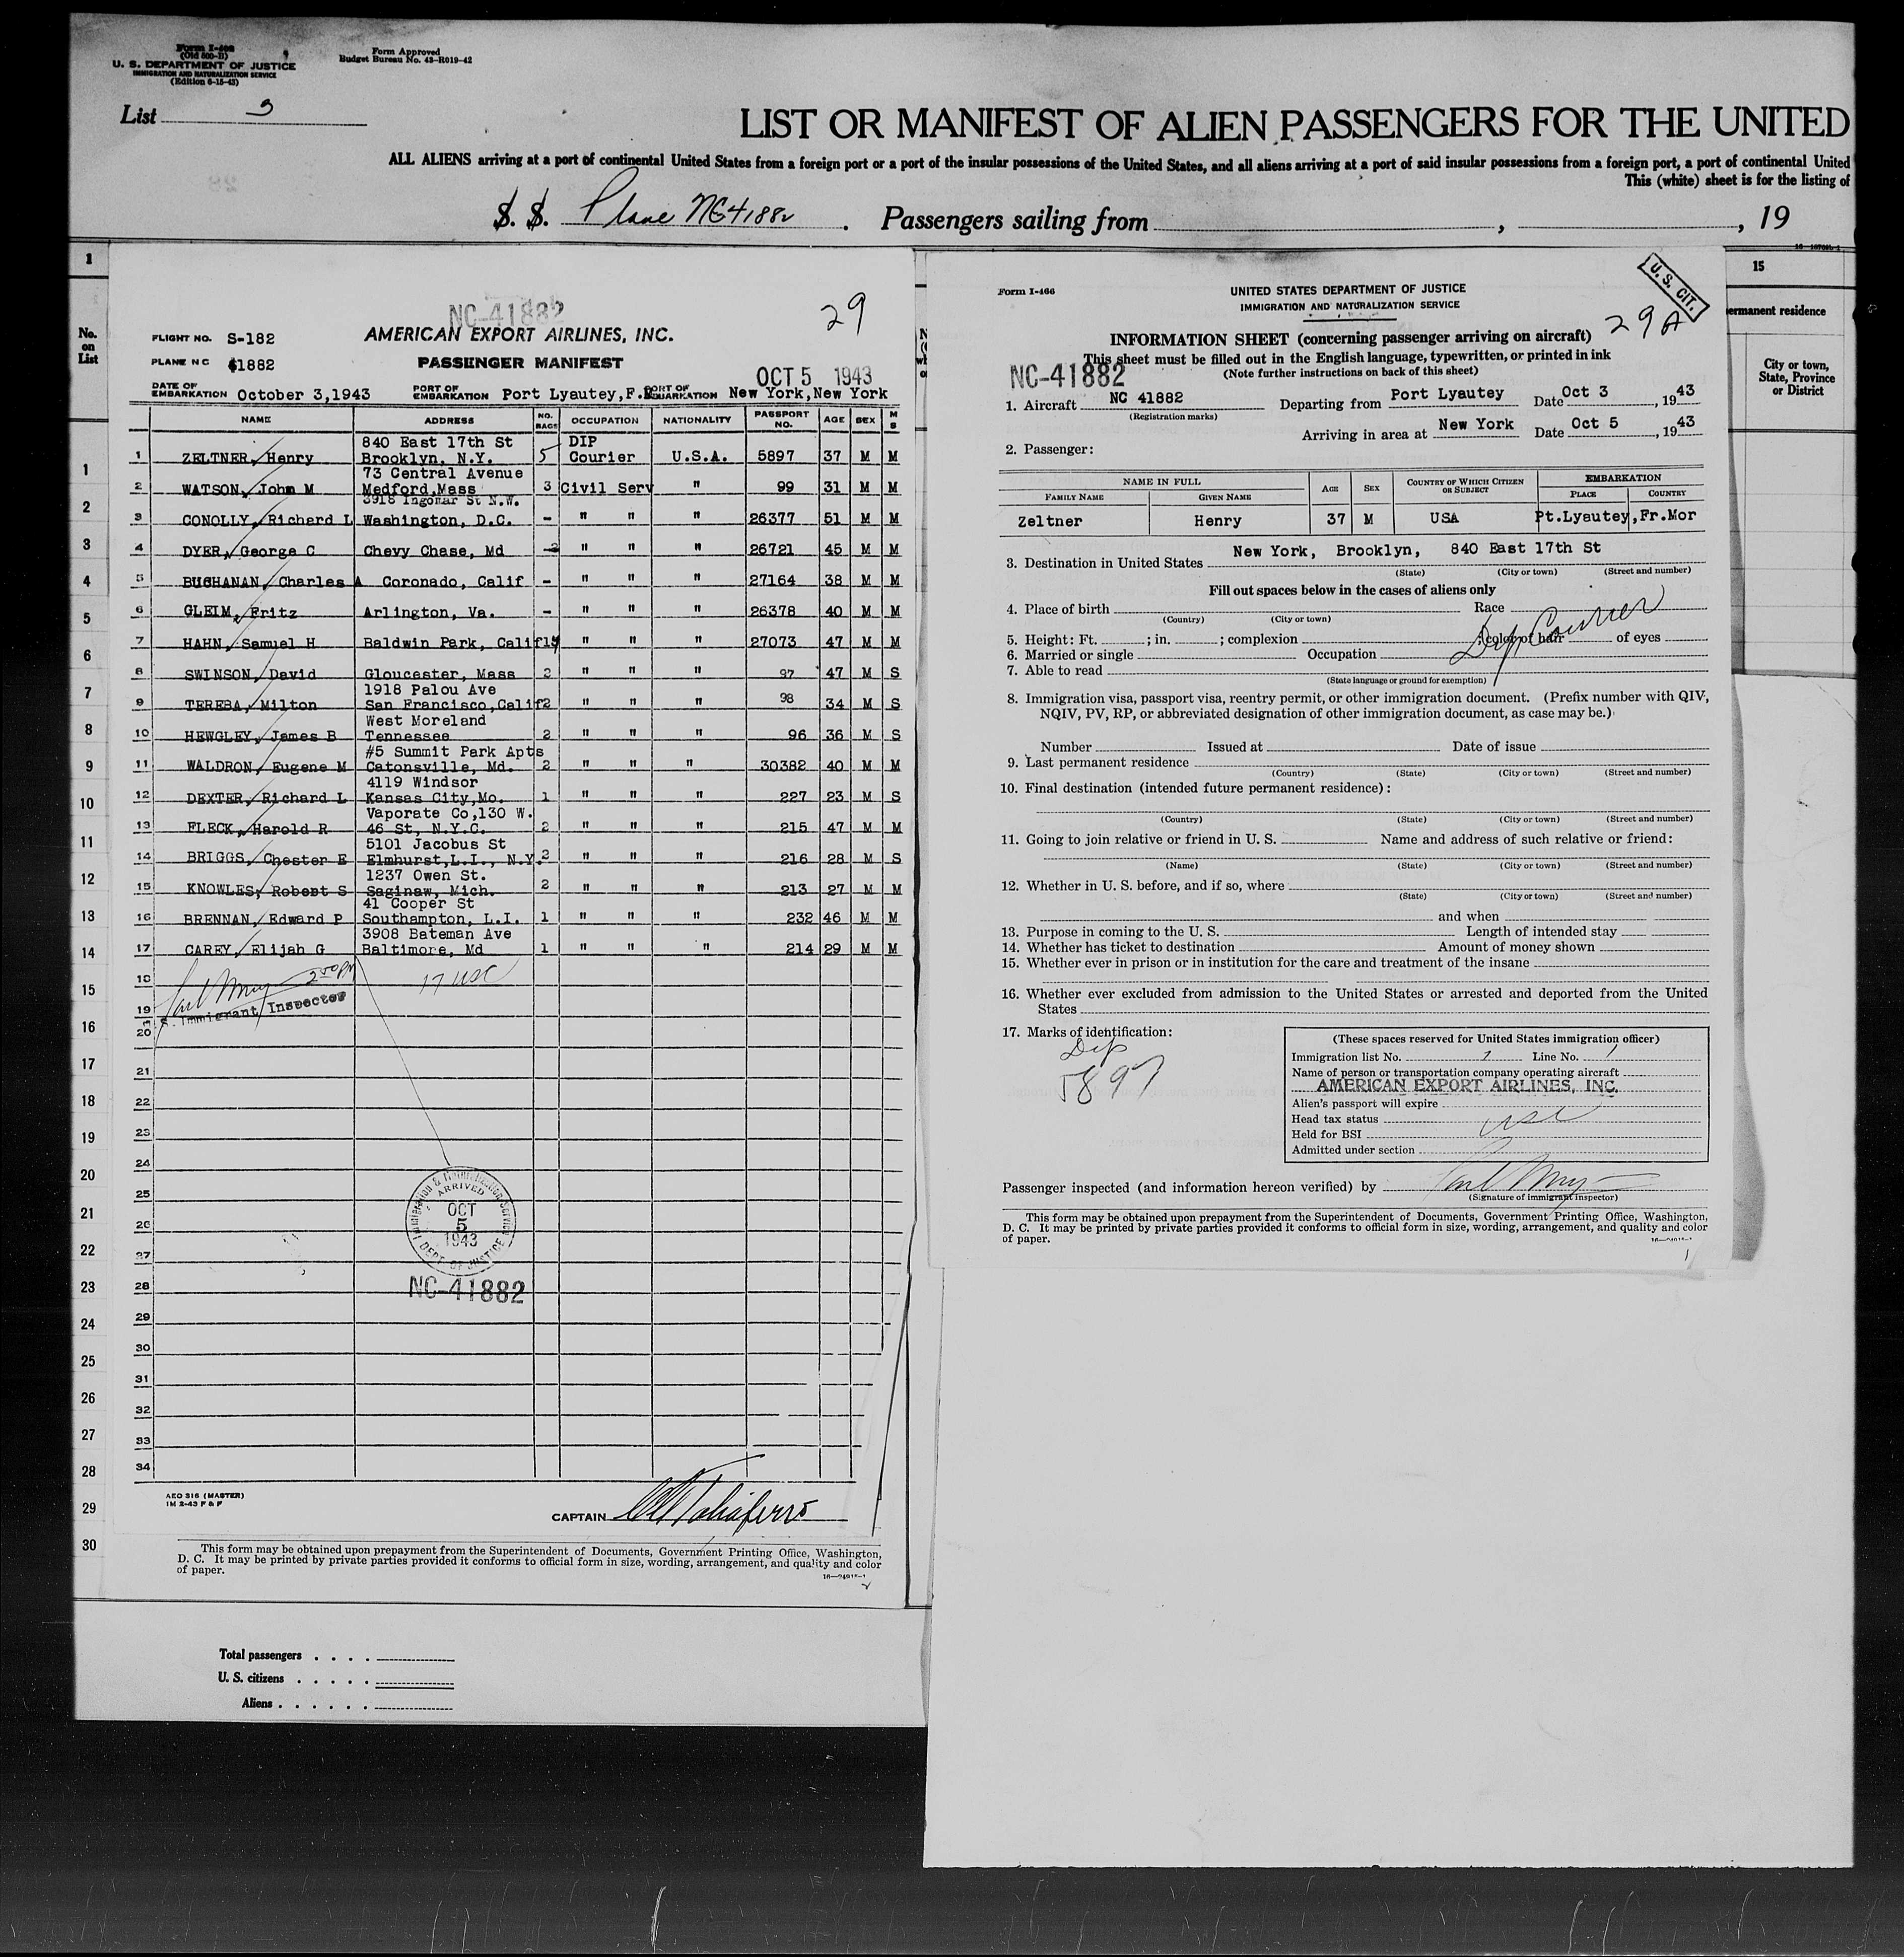 Form I-466
(Old 500-B)
U. S. DEPARTMENT OF JUSTICE
IMMIGRATION AND NATURALIZATION SERVICE
(Edition 6-15-43)
Form Approved
Budget Bureau No. 43-R019-42
List 3
LIST OR MANIFEST OF ALIEN PASSENGERS FOR THE UNITED
ALL ALIENS arriving at a port of continental United States from a foreign port or a port of the insular possessions of the United States, and all aliens arriving at a port of said insular possessions from a foreign port, a port of continental United
This (white) sheet is for the listing of
S. S. Plane NC41882. Passengers sailing from , , 19
1
No.
on
List
1
2
3
4
5
6
7
8
9
10
11
12
13
14
15
16
17
18
19
20
21
22
23
24
25
26
27
28
29
30
NC-41882
29
FLIGHT NO. S-182
AMERICAN EXPORT AIRLINES, INC.
PLANE NC 41882
PASSENGER MANIFEST
OCT 5 1943
DATE OF EMBARKATION October 3,1943 PORT OF EMBARKATION Port Lyautey,F. PORT OF New York,New York
NAME ADDRESS NO. BAGS OCCUPATION NATIONALITY PASSPORT NO. AGE SEX M S
840 East 17th St DIP
1 ZELTNER, Henry Brooklyn, N.Y. 5 Courier U.S.A. 5897 37 M M
73 Central Avenue
2 WATSON, John M Medford,Mass 3 Civil Serv " 99 31 M M
3918 Ingomar St N.W.
3 CONOLLY, Richard L Washington, D.C. - " " " 26377 51 M M
4 DYER, George C Chevy Chase, Md " " " 26721 45 M M
5 BUCHANAN, Charles A Coronado, Calif - " " " 27164 38 M M
6 GLEIM, Fritz Arlington, Va. - " " " 26378 40 M M
7 HAHN, Samuel H Baldwin Park, Calif " " " 27073 47 M M
8 SWINSON, David Gloucester, Mass 2 " " " 97 47 M S
1918 Palou Ave
9 TEREBA, Milton San Francisco,Calif 2 " " " 98 34 M S
West Moreland
10 HEWGLEY, James B Tennessee 2 " " " 96 36 M S
#5 Summit Park Apts
11 WALDRON, Eugene M Catonsville, Md. 2 " " " 30382 40 M M
4119 Windsor
12 DEXTER, Richard L Kansas City,Mo. 1 " " " 227 23 M S
Vaporate Co,130 W.
13 FLECK, Harold R 46 St, N.Y.C. 2 " " " 215 47 M M
5101 Jacobus St
14 BRIGGS, Chester E Elmhurst,L.I., N.Y. 2 " " " 216 28 M S
1237 Owen St.
15 KNOWLES, Robert S Saginaw, Mich. 2 " " " 213 27 M M
41 Cooper St
16 BRENNAN, Edward P Southampton, L.I. 1 " " " 232 46 M M
3908 Bateman Ave
17 CAREY, Elijah G Baltimore, Md 1 " " " 214 29 M M
18 17 USC
19 Immigrant Inspector
20
21
22
23
24
25
26
27
28
29
30
31
32
33
34
ARRIVED
OCT
5
1943
DEPT. OF JUSTICE
NC-41882
AEO 316 (MASTER)
1M 2-43 F & F
CAPTAIN
This form may be obtained upon prepayment from the Superintendent of Documents, Government Printing Office, Washington,
D. C. It may be printed by private parties provided it conforms to official form in size, wording, arrangement, and quality and color
of paper.
Total passengers . . . .
U. S. citizens . . . . .
Aliens . . . . . .
Form I-466
UNITED STATES DEPARTMENT OF JUSTICE
IMMIGRATION AND NATURALIZATION SERVICE
U. S. CIT.
29A
INFORMATION SHEET (concerning passenger arriving on aircraft)
This sheet must be filled out in the English language, typewritten, or printed in ink
(Note further instructions on back of this sheet)
NC-41882
1. Aircraft NC 41882 Departing from Port Lyautey Date Oct 3, 1943
(Registration marks)
Arriving in area at New York Date Oct 5, 1943
2. Passenger:
NAME IN FULL AGE SEX COUNTRY OF WHICH CITIZEN OR SUBJECT EMBARKATION
FAMILY NAME GIVEN NAME PLACE COUNTRY
Zeltner Henry 37 M USA Pt.Lyautey,Fr.Mor
3. Destination in United States New York, Brooklyn, 840 East 17th St
(State) (City or town) (Street and number)
Fill out spaces below in the cases of aliens only
4. Place of birth Race
(Country) (City or town)
5. Height: Ft. ; in. ; complexion ; color of hair of eyes
Dip Courier
6. Married or single Occupation
7. Able to read
(State language or ground for exemption)
8. Immigration visa, passport visa, reentry permit, or other immigration document. (Prefix number with QIV,
NQIV, PV, RP, or abbreviated designation of other immigration document, as case may be.)
Number Issued at Date of issue
9. Last permanent residence
(Country) (State) (City or town) (Street and number)
10. Final destination (intended future permanent residence):
(Country) (State) (City or town) (Street and number)
11. Going to join relative or friend in U. S. Name and address of such relative or friend:
(Name) (State) (City or town) (Street and number)
12. Whether in U. S. before, and if so, where
(State) (City or town) (Street and number)
and when
13. Purpose in coming to the U. S. Length of intended stay
14. Whether has ticket to destination Amount of money shown
15. Whether ever in prison or in institution for the care and treatment of the insane
16. Whether ever excluded from admission to the United States or arrested and deported from the United
States
17. Marks of identification:
Dip
5897
(These spaces reserved for United States immigration officer)
Immigration list No. 1 Line No. 1
Name of person or transportation company operating aircraft
AMERICAN EXPORT AIRLINES, INC.
Alien's passport will expire
Head tax status USC
Held for BSI
Admitted under section
Passenger inspected (and information hereon verified) by
(Signature of immigrant inspector)
This form may be obtained upon prepayment from the Superintendent of Documents, Government Printing Office, Washington,
D. C. It may be printed by private parties provided it conforms to official form in size, wording, arrangement, and quality and color
of paper.
15
ermanent residence
City or town,
State, Province
or District